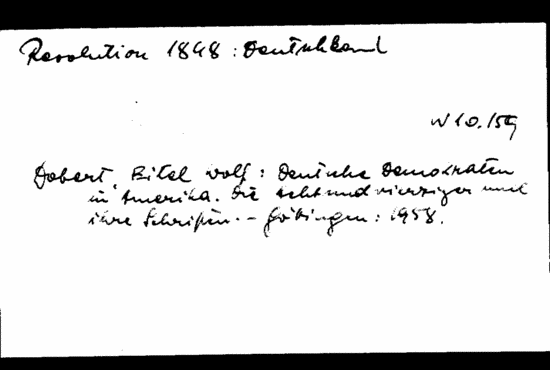 Revolution 1848 : Deutschland
W 10.159
Dobert, Eitel Wolf : Deutsche Demokraten
in Amerika. Die Achtundvierziger und
ihre Schriften. – Göttingen : 1958.